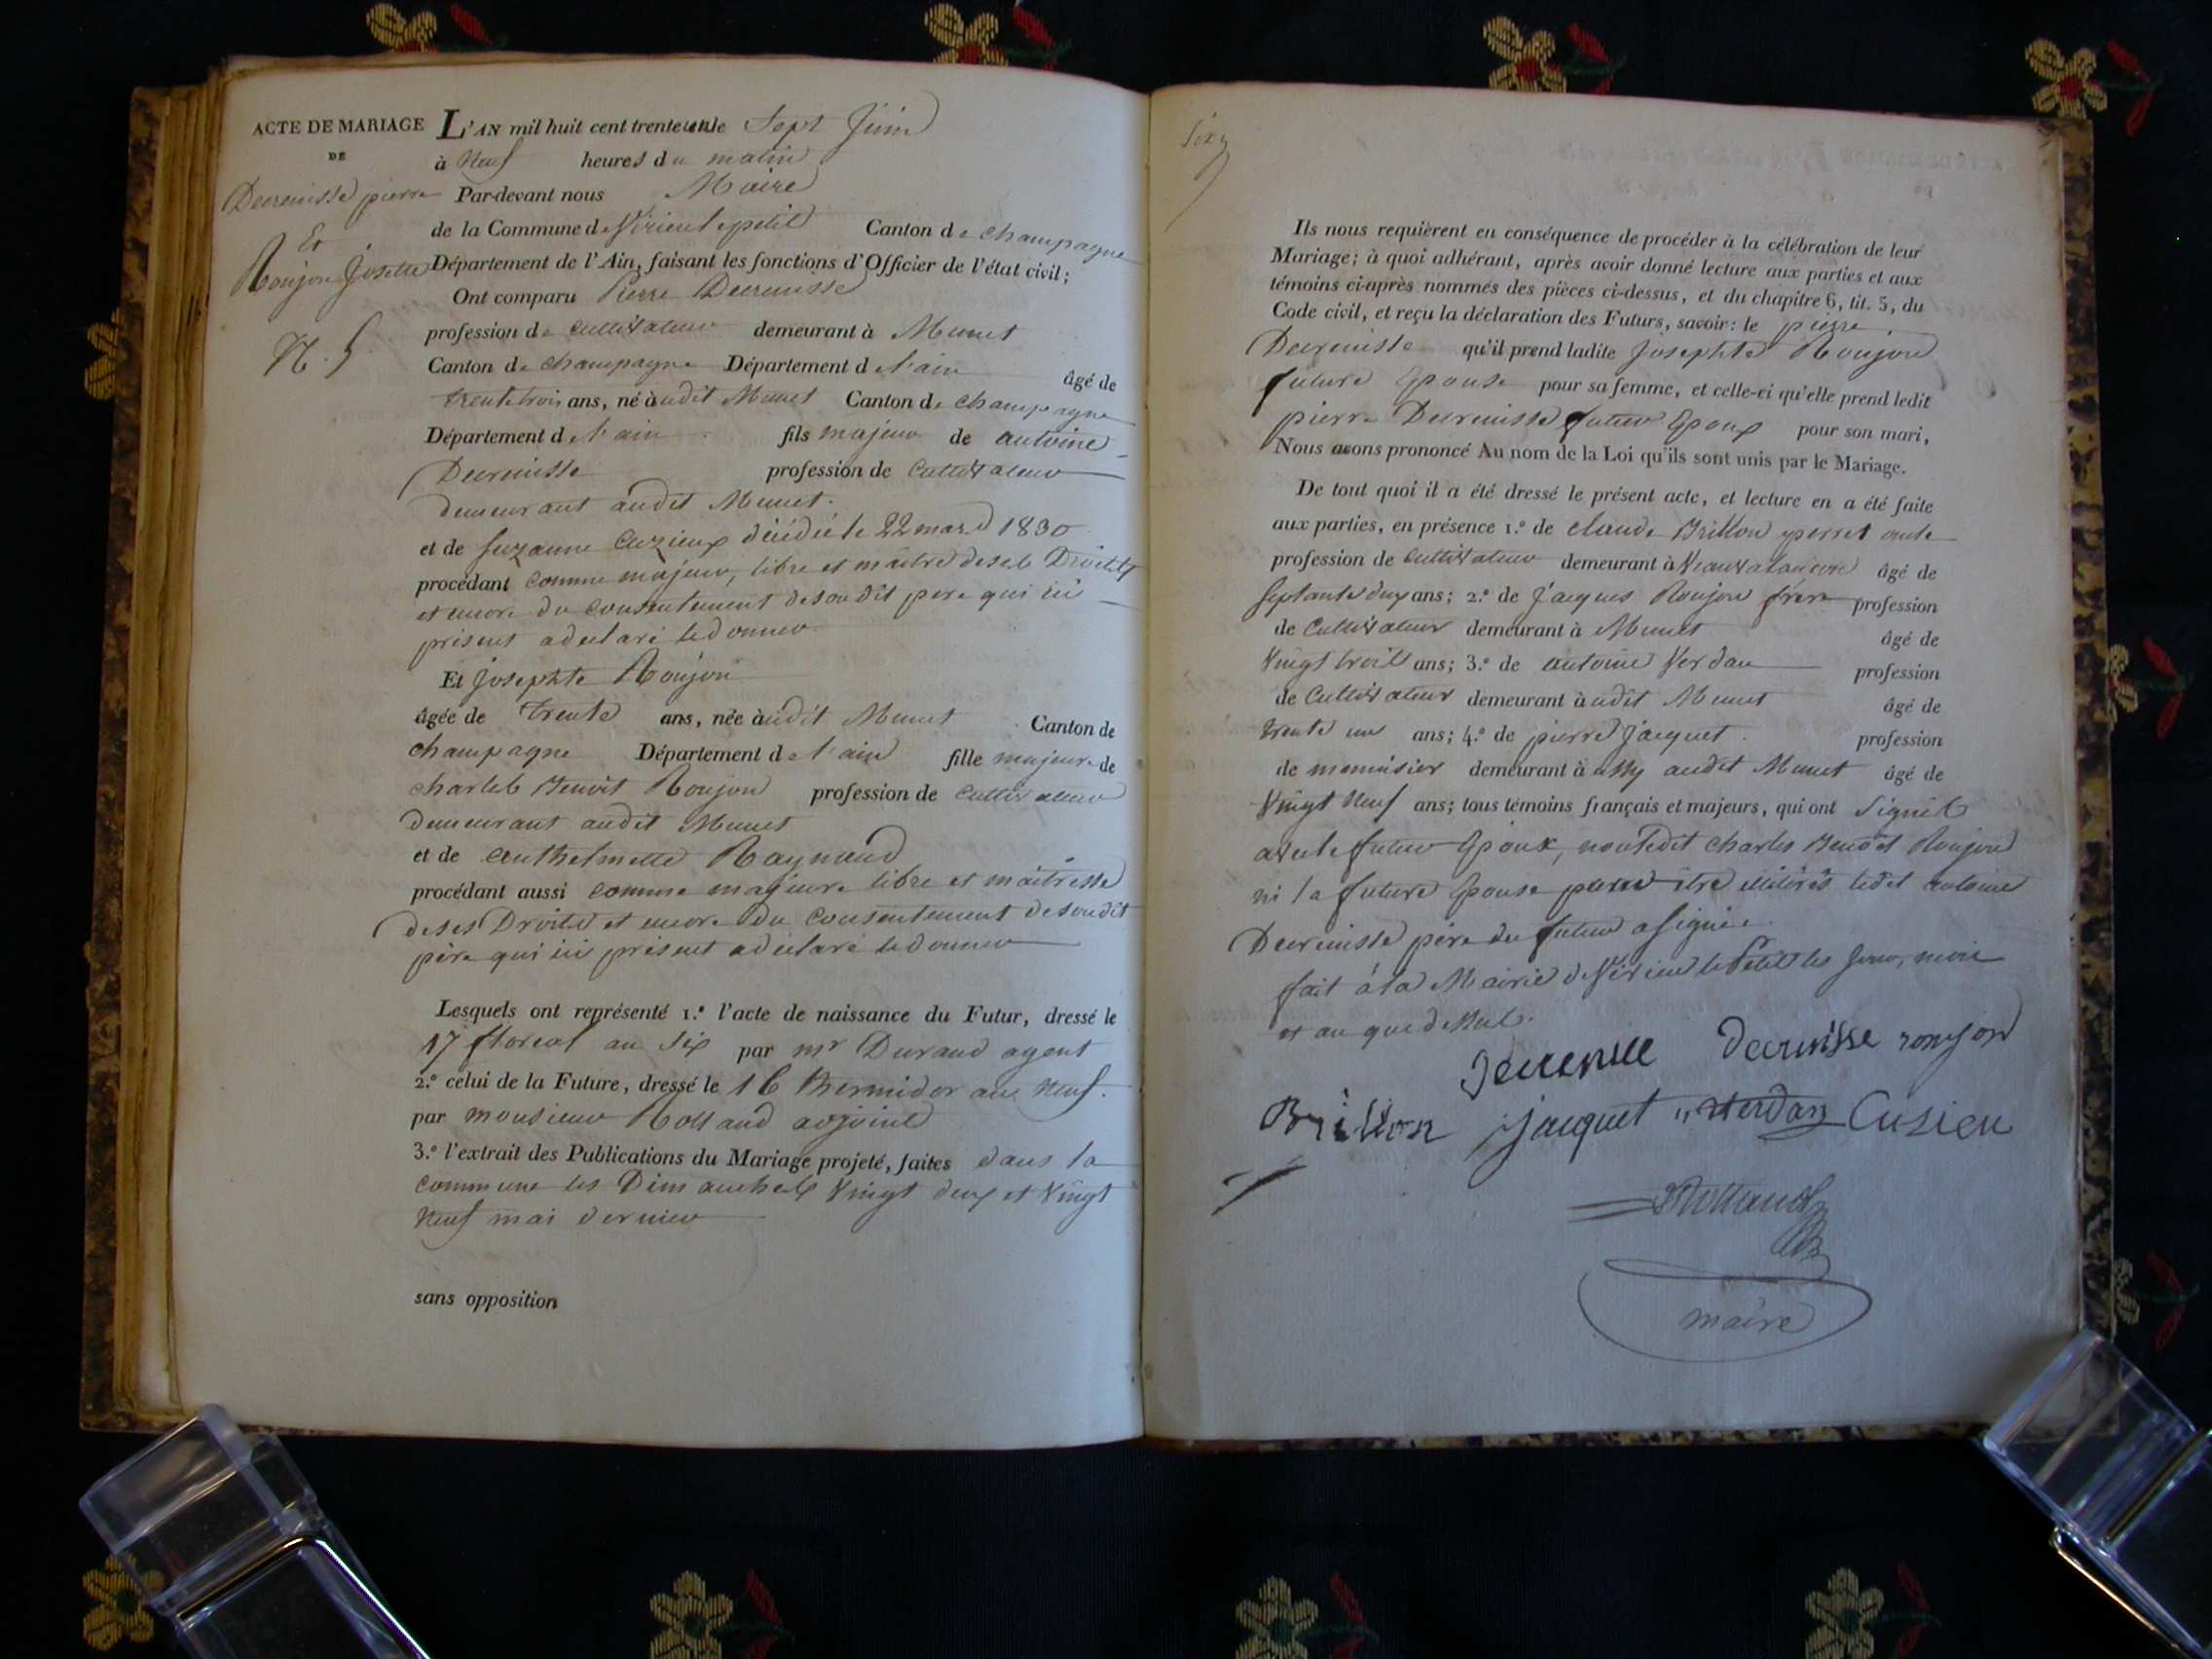 ACTE DE MARIAGE
DE
Decrenisse pierre
Et
Roujon Josette
N. 5
L'AN mil huit cent trente un le Sept Juin
à Neuf heures du matin
Par-devant nous Maire
de la Commune de Virieu le petit Canton de champagne
Département de l'Ain, faisant les fonctions d'Officier de l'état civil;
Ont comparu Pierre Decrenisse
profession de Cultivateur demeurant à Munet
Canton de champagne Département de l'ain âgé de
trente trois ans, né audit Munet Canton de champagne
Département de l'ain fils majeur de antoine
Decrenisse profession de Cultivateur
demeurant audit Munet
et de Suzanne Cuzieux décédée le 22 mars 1830
procédant Comme majeur, libre et maitre de ses Droits
et encore du Consentement de son dit pere qui ici
présent a declaré le donner
Et Josephte Roujon
âgée de trente ans, née audit Munet Canton de
champagne Département de l'ain fille majeure de
charles Benoit Roujon profession de Cultivateur
demeurant audit Munet
et de anthelmette Raymand
procédant aussi comme majeure libre et maitresse
de ses Droits et encore du Consentement de son dit
père qui ici présent a déclaré le donner
Lesquels ont représenté 1.° l'acte de naissance du Futur, dressé le
17 floreal an Six par mr Durand agent
2.° celui de la Future, dressé le 16 thermidor an Neuf.
par monsieur Rolland adjoint
3.° l'extrait des Publications du Mariage projeté, faites dans la
Commune les Dimanches Vingt deux et Vingt
Neuf mai dernier
sans opposition
Six
Ils nous requièrent en conséquence de procéder à la célébration de leur
Mariage; à quoi adhérant, après avoir donné lecture aux parties et aux
témoins ci-après nommés des pièces ci-dessus, et du chapitre 6, tit. 5, du
Code civil, et reçu la déclaration des Futurs, savoir: le pierre
Decrenisse qu'il prend ladite Josephte Roujon
future Epouse pour sa femme, et celle-ci qu'elle prend ledit
pierre Decrenisse futur Epoux pour son mari,
Nous avons prononcé Au nom de la Loi qu'ils sont unis par le Mariage.
De tout quoi il a été dressé le présent acte, et lecture en a été faite
aux parties, en présence 1.° de claude Brillon perret
profession de Cultivateur demeurant à âgé de
Septante deux ans; 2.° de Jacques Roujon frère profession
de Cultivateur demeurant à Munet âgé de
Vingt trois ans; 3.° de antoine Verdan profession
de Cultivateur demeurant audit Munet âgé de
trente un ans; 4.° de pierre Jacquet profession
de menuisier demeurant à audit Munet âgé de
Vingt Neuf ans; tous témoins français et majeurs, qui ont Signés
avec le futur Epoux, non ledit Charles Benoit Roujon
ni la future Epouse pour être illitérés ledit antoine
Decrenisse père du futur a Signé
fait à la Mairie de Virieu le Petit les Jour, mois
et an que dessus.
Decrenisse Decrenisse roujon
Brillon jacquet verdan Cusieu
Rolland
maire